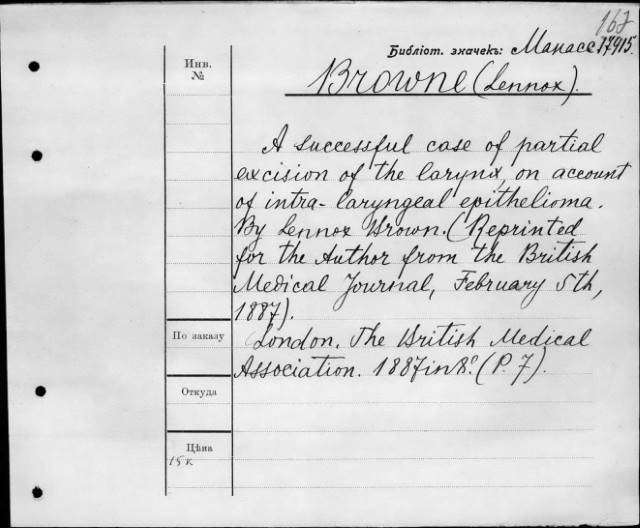 162
Библіот. значекъ: Манасс 17915.
Инв.
№
Browne (Lennox).
A successful case of partial
excision of the larynx, on account
of intra-laryngeal epithelioma.
By Lennox Brown. (Reprinted
for the Author from the British
Medical Journal, February 5th,
1887).
По заказу
London. The British Medical
Association. 1887 in 8º. (P. 7).
Откуда
Цѣна
15 к